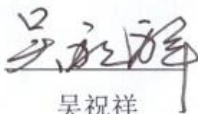 吴祝祥
吴祝祥